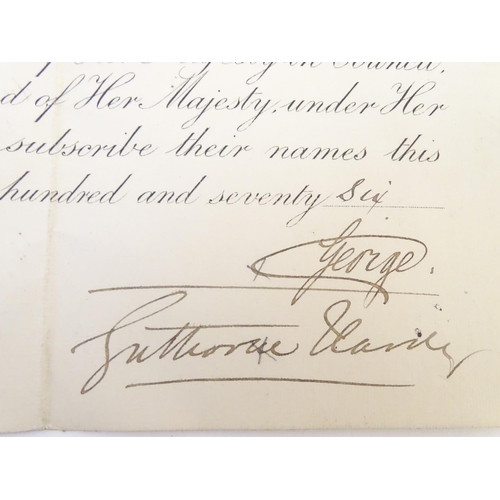 in Council,
d of Her Majesty, under Her
subscribe their names this
hundred and seventy Six
George.
Gathorne Hardy